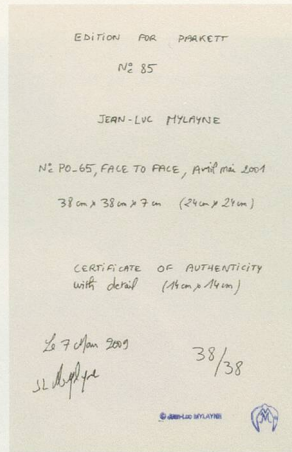 EDITION FOR PARKETT
No 85
JEAN-LUC MYLAYNE
No PO_65, FACE TO FACE, Avril mai 2001
38 cm x 38 cm x 7 cm (24 cm x 24 cm)
CERTIFICATE OF AUTHENTICITY
with detail (14 cm x 14 cm)
Le 7 Mars 2009
JL Mylayne
38/38
© JEAN-LUC MYLAYNE